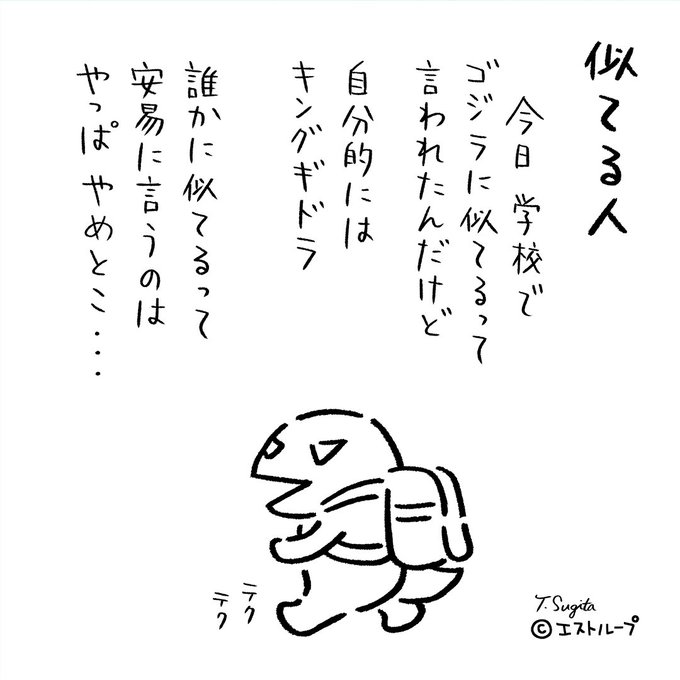 似てる人
今日 学校で
ゴジラに似てるって
言われたんだけど
自分的には
キングギドラ
誰かに似てるって
安易に言うのは
やっぱ やめとこ・・・
テク
テク
T.Sugita
©エストループ